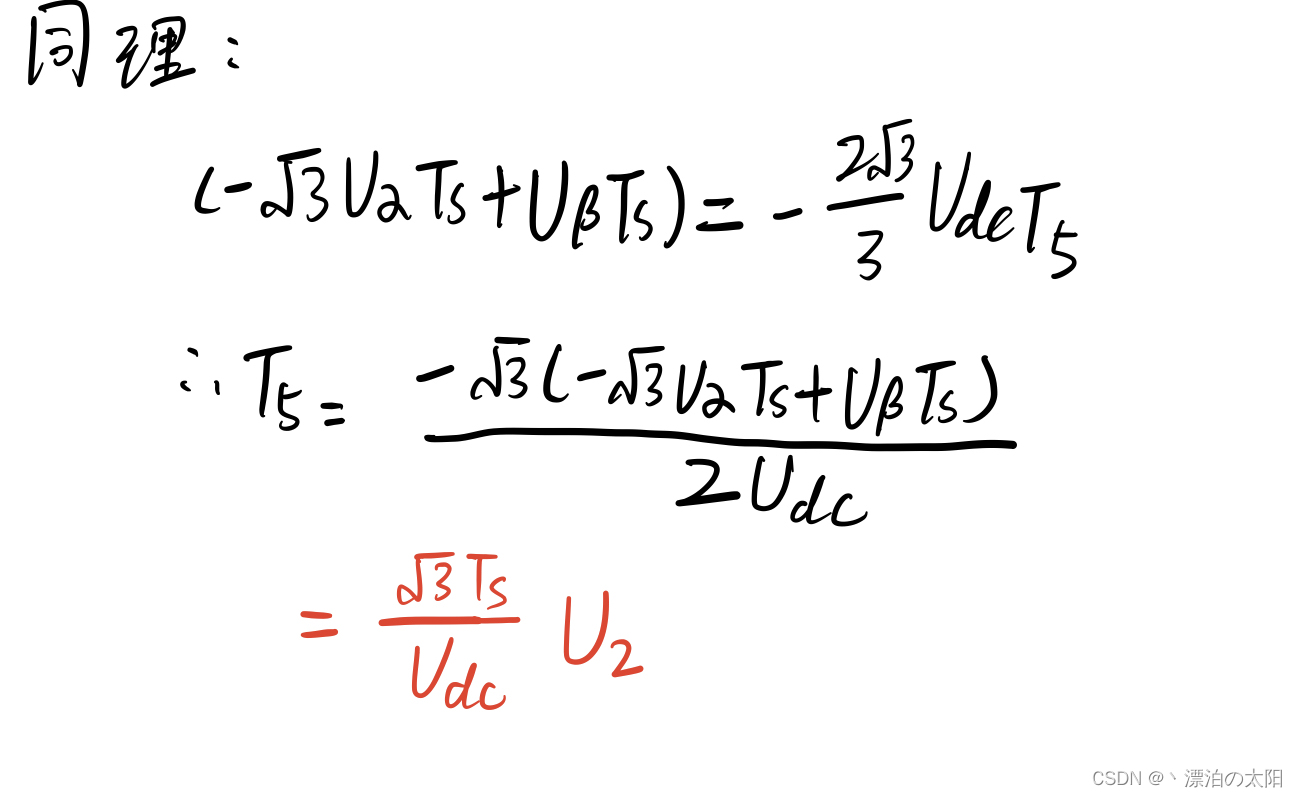 同理：
(-√3 UαTs + UβTs) = - 2√3/3 UdcT5
∴ T5 = -√3(-√3 UαTs + UβTs) / 2Udc
= √3Ts/Udc U2
CSDN @丶漂泊の太阳